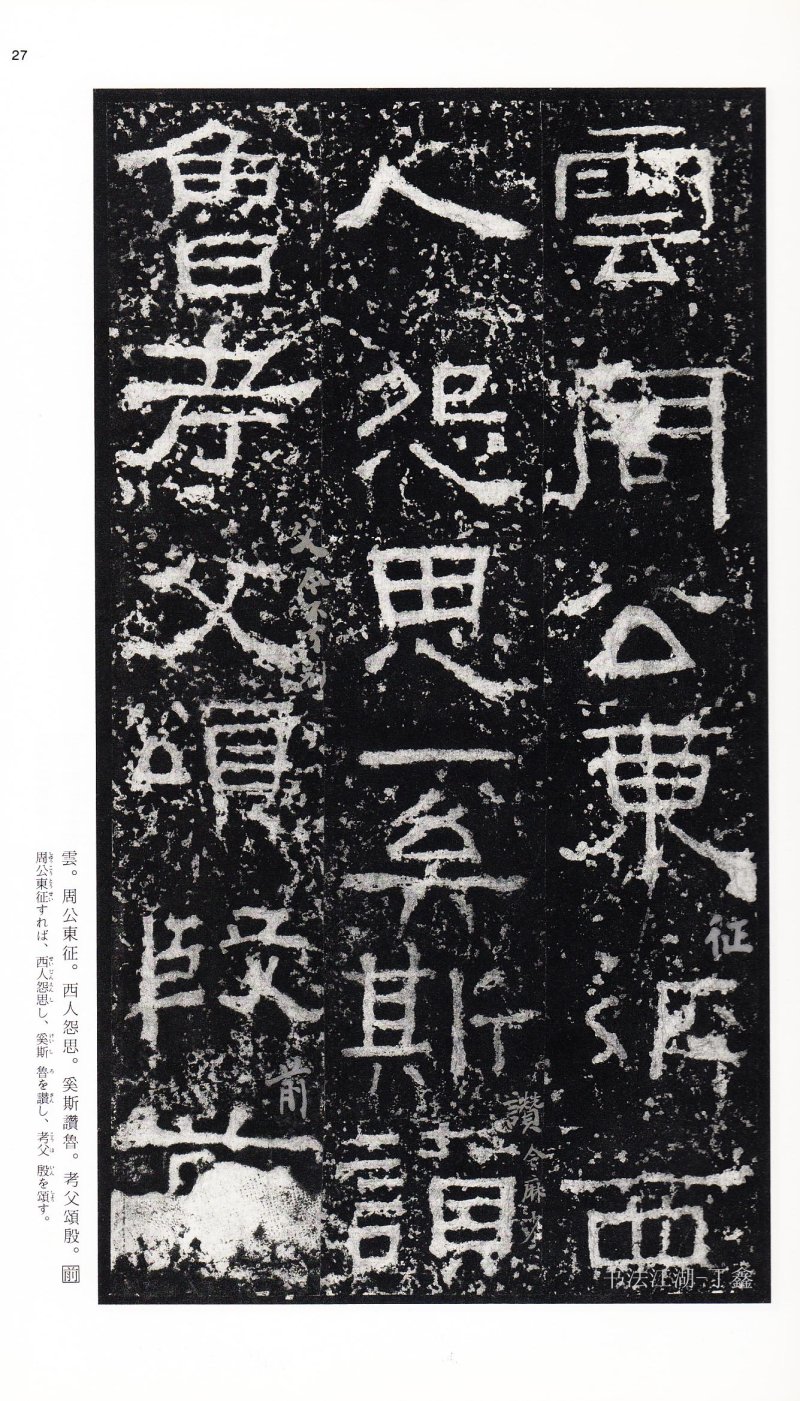 27
雲周公東征西
人怨思奚斯讚
魯考父頌殷前
征
讚
前
雲。周公東征。西人怨思。奚斯讚魯。考父頌殷。前
周公東征すれば、西人怨思し、奚斯 魯を讚し、考父 殷を頌す。
书法江湖-丁鑫